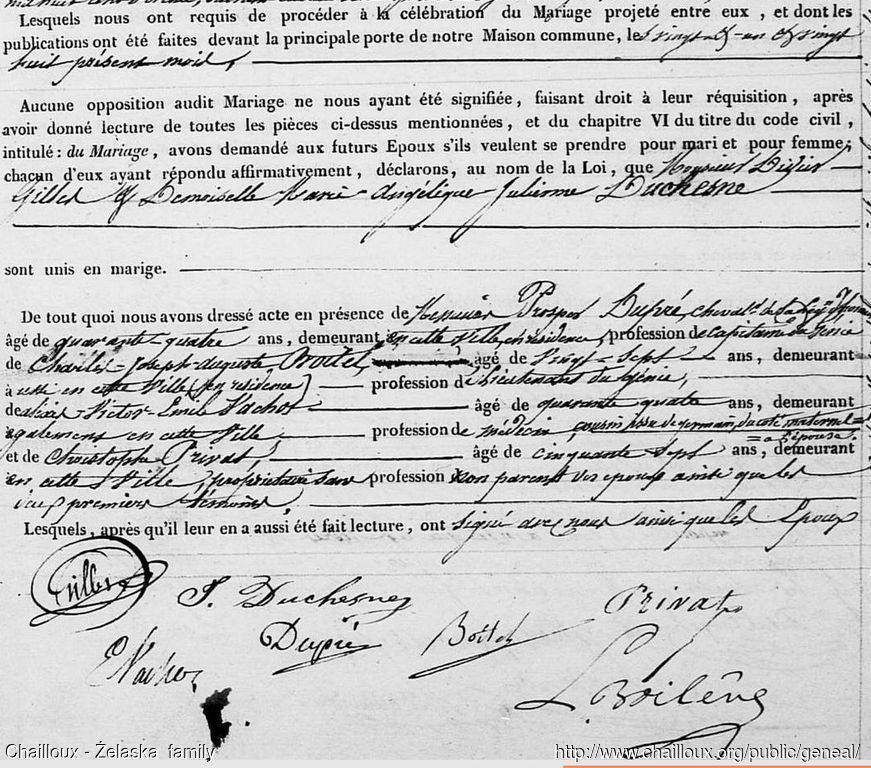 Lesquels nous ont requis de procéder à la célébration du Mariage projeté entre eux, et dont les
publications ont été faites devant la principale porte de notre Maison commune, les vingt-&-un & vingt
huit présent mois,
Aucune opposition audit Mariage ne nous ayant été signifiée, faisant droit à leur réquisition, après
avoir donné lecture de toutes les pièces ci-dessus mentionnées, et du chapitre VI du titre du code civil,
intitulé : du Mariage, avons demandé aux futurs Epoux s'ils veulent se prendre pour mari et pour femme;
chacun d'eux ayant répondu affirmativement, déclarons, au nom de la Loi, que Monsieur Didier
Gilles & Demoiselle Marie-Angélique-Julienne Duchesne
sont unis en marige.
De tout quoi nous avons dressé acte en présence de Messieurs Prosper Dupré, cheval. de la
âgé de quarante-quatre ans, demeurant en cette Ville, en résidence, profession de capitaine du Génie
de Charles-Joseph-Auguste Boitel, âgé de Vingt-Sept ans, demeurant
aussi en cette Ville (en résidence) profession de Lieutenant du Génie,
de Victor Emile Vachot âgé de quarante quatre ans, demeurant
également en cette Ville, profession de médecin, cousin issu de germain, du côté maternel
= a l'épouse.
et de Christophe Privat, âgé de cinquante Sept ans, demeurant
en cette Ville, propriétaire sans profession non parent des epoux ainsi que les
deux premiers témoins,
Lesquels, après qu'il leur en a aussi été fait lecture, ont signé avec nous ainsi que les Epoux
Gilles
J. Duchesne
Privat
Dupré
Boitel
EVachot
L. Boilêve
Chailloux - Żelaska family
http://www.chailloux.org/public/geneal/